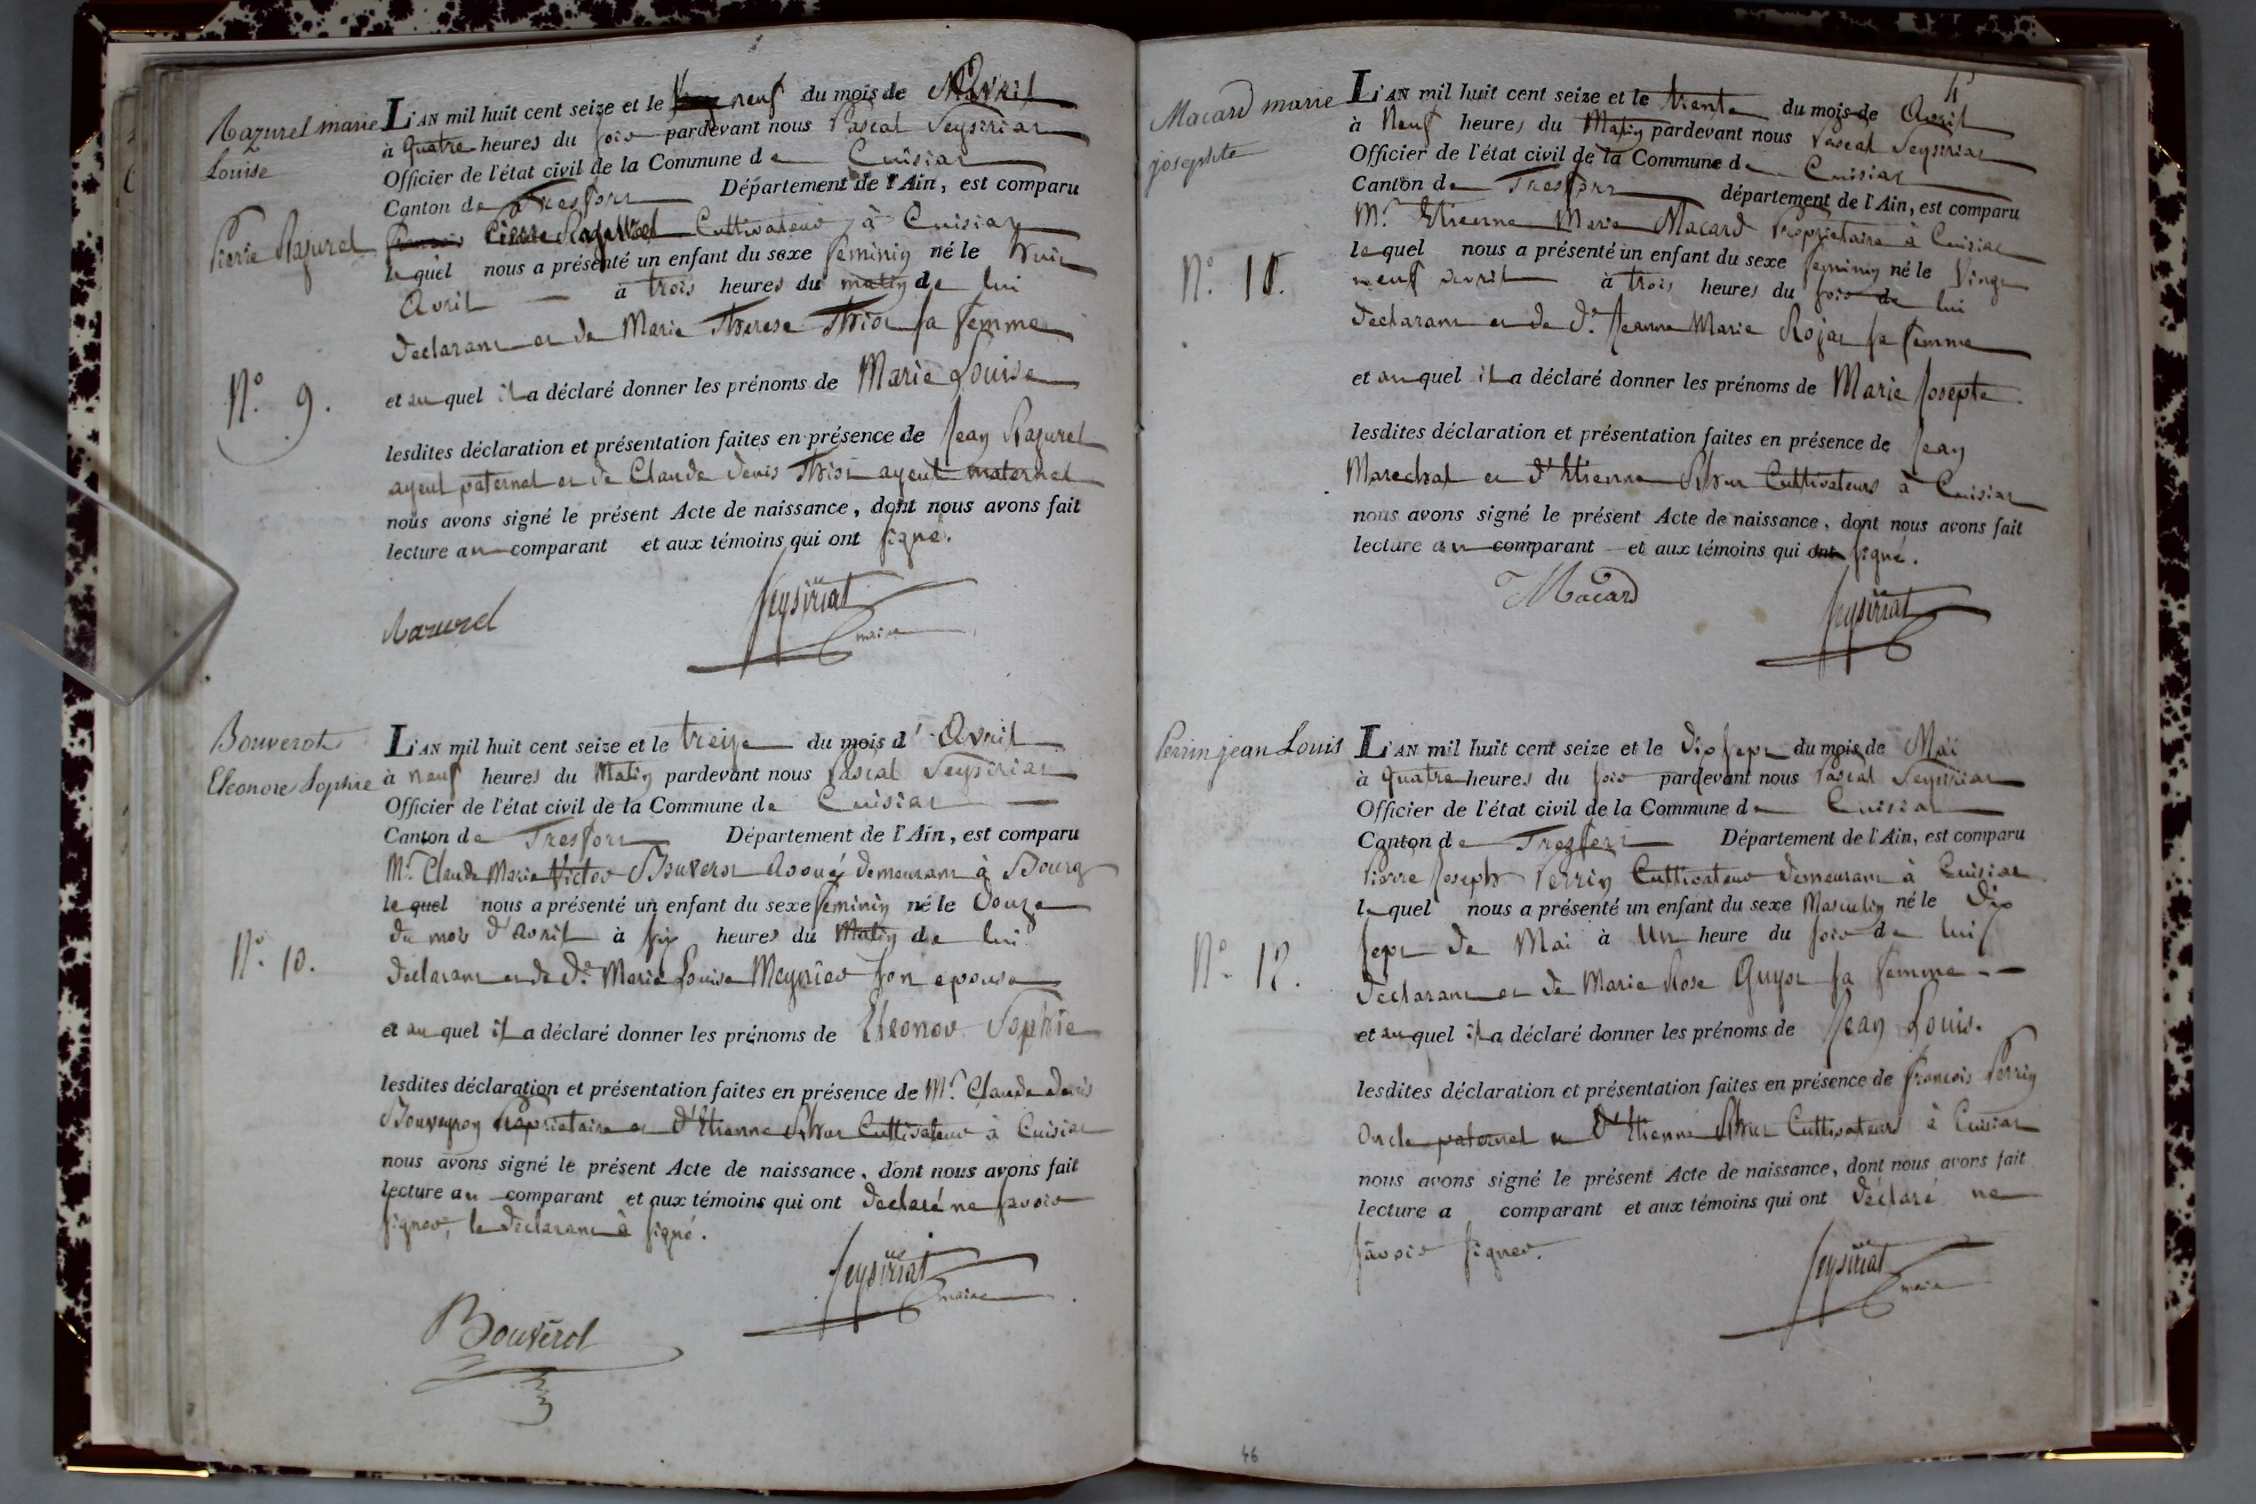 Razurel marie
Louise
Pierre Razurel
N.º 9.
L'AN mil huit cent seize et le neuf du mois de Avril
à quatre heures du soir pardevant nous Pascal Seysiriat
Officier de l'état civil de la Commune de Cuisiat
Canton de Treffort Département de l'Ain, est comparu
Pierre Razurel Cultivateur à Cuisiat
lequel nous a présenté un enfant du sexe feminin né le huit
Avril à trois heures du matin de lui
declarant et de Marie Therese Thiot sa femme
et auquel il a déclaré donner les prénoms de Marie Louise
lesdites déclaration et présentation faites en présence de Jean Razurel
ayeul paternel et de Claude denis Thiot ayeul maternel
nous avons signé le présent Acte de naissance, dont nous avons fait
lecture au comparant et aux témoins qui ont signé.
Razurel
Seysiriat
maire
Bouverot
Eleonore Sophie
N.º 10.
L'AN mil huit cent seize et le treize du mois d'Avril
à neuf heures du Matin pardevant nous Pascal Seysiriat
Officier de l'état civil de la Commune de Cuisiat
Canton de Treffort Département de l'Ain, est comparu
Mr. Claude Marie Victor Bouverot Avoué demeurant à Bourg
lequel nous a présenté un enfant du sexe feminin né le Douze
du mois d'avril à six heures du Matin de lui
declarant et de De. Marie Louise Meynier son epouse
et auquel il a déclaré donner les prénoms de Eleonor Sophie
lesdites déclaration et présentation faites en présence de Mr. Claude denis
Bouveyron Propriétaire et d'Etienne Cultivateur à Cuisiat
nous avons signé le présent Acte de naissance, dont nous avons fait
lecture au comparant et aux témoins qui ont declaré ne savoir
signer, le déclarant à signé.
Seysiriat
maire
Bouverot
4
Macard marie
josephte
N.º 11.
L'AN mil huit cent seize et le trente du mois de Avril
à Neuf heures du Matin pardevant nous Pascal Seysiriat
Officier de l'état civil de la Commune de Cuisiat
Canton de Treffort département de l'Ain, est comparu
Mr. Etienne Marie Macard Propriétaire à Cuisiat
lequel nous a présenté un enfant du sexe feminin né le Vingt
neuf avril à trois heures du soir de lui
declarant et de De. Jeanne Marie Rojat sa femme
et auquel il a déclaré donner les prénoms de Marie Josepte
lesdites déclaration et présentation faites en présence de Jean
Marechal et d'Etienne Cultivateurs à Cuisiat
nous avons signé le présent Acte de naissance, dont nous avons fait
lecture au comparant et aux témoins qui ont signé.
Macard
Seysiriat
Perrin jean Louis
N.º 12.
L'AN mil huit cent seize et le dix sept du mois de Mai
à quatre heures du soir pardevant nous Pascal Seysiriat
Officier de l'état civil de la Commune de Cuisiat
Canton de Treffort Département de l'Ain, est comparu
Pierre Joseph Perrin Cultivateur demeurant à Cuisiat
lequel nous a présenté un enfant du sexe Masculin né le dix
sept de Mai à Un heure du soir de lui
declarant et de Marie Rose Guyot sa femme
et auquel il a déclaré donner les prénoms de Jean Louis.
lesdites déclaration et présentation faites en présence de François Perrin
Oncle paternel et d'Etienne Cultivateurs à Cuisiat
nous avons signé le présent Acte de naissance, dont nous avons fait
lecture a comparant et aux témoins qui ont déclaré ne
savoir signer.
Seysiriat
maire
46